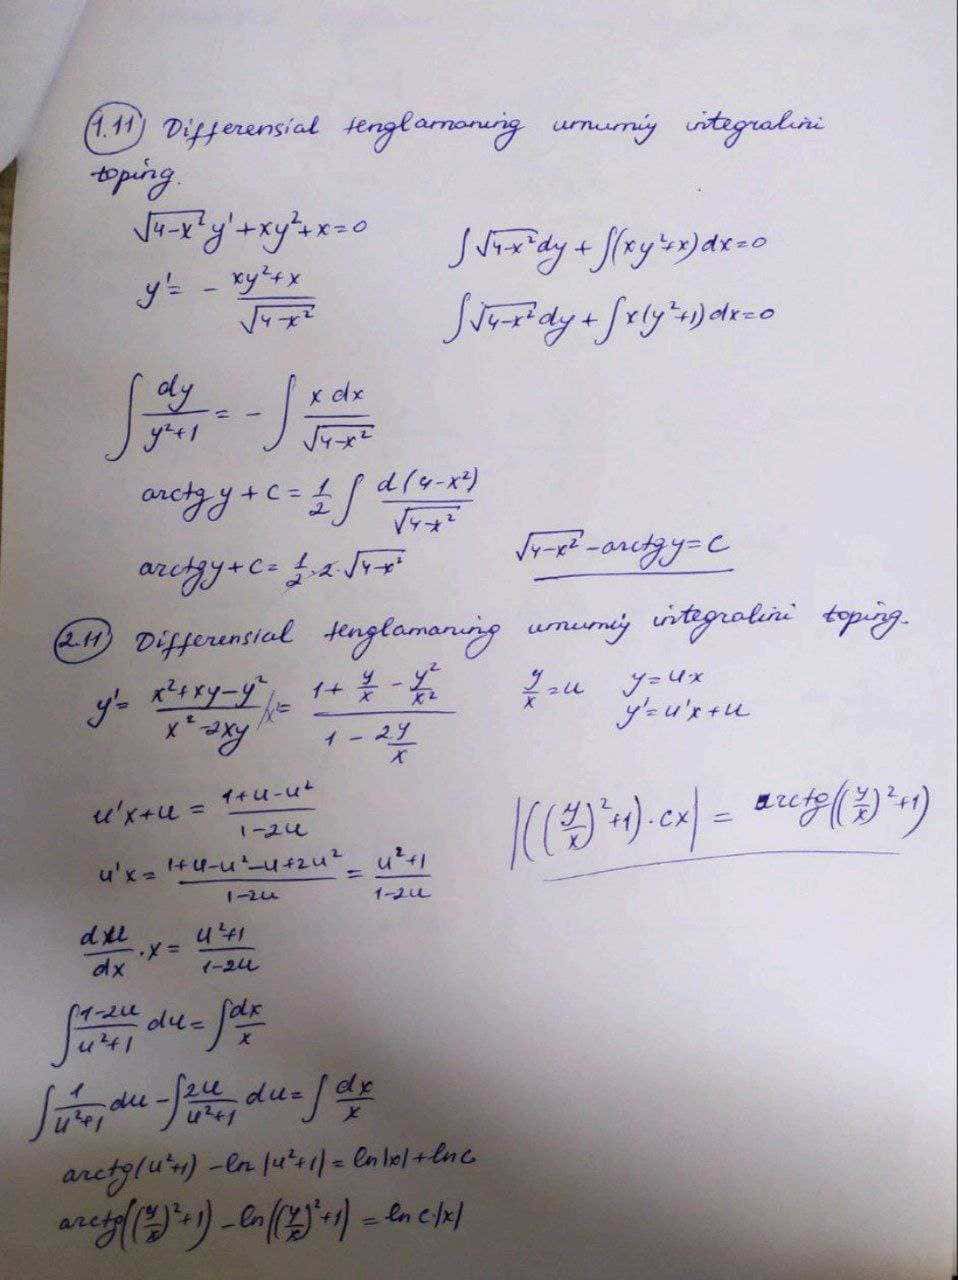 1.11 Differensial tenglamaning umumiy integralini
toping.
√(4-x²) y' + xy² + x = 0
y' = - (xy²+x)/√(4-x²)
∫√(4-x²) dy + ∫(xy²+x)dx = 0
∫√(4-x²) dy + ∫x(y²+1)dx = 0
∫ dy/(y²+1) = - ∫ x dx/√(4-x²)
arctg y + C = 1/2 ∫ d(4-x²)/√(4-x²)
arctg y + C = 1/2 · 2 · √(4-x²)
√(4-x²) - arctg y = C
2.11 Differensial tenglamaning umumiy integralini toping.
y' = (x²+xy-y²)/(x²-2xy) /x² = (1 + y/x - y²/x²)/(1 - 2y/x)
y/x = u
y = u·x
y' = u'x + u
u'x + u = (1+u-u²)/(1-2u)
u'x = (1+u-u²-u+2u²)/(1-2u) = (u²+1)/(1-2u)
du/dx · x = (u²+1)/(1-2u)
∫ (1-2u)/(u²+1) du = ∫ dx/x
∫ 1/(u²+1) du - ∫ 2u/(u²+1) du = ∫ dx/x
arctg(u²+1) - ln|u²+1| = ln|x| + ln c
arctg((y/x)²+1) - ln((y/x)²+1) = ln c·|x|
|((y/x)²+1)·cx| = arctg((y/x)²+1)